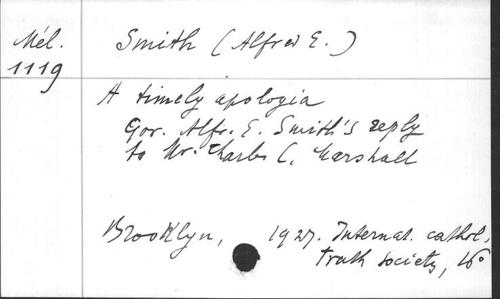 Mél.
1119
Smith (Alfred E.)
A timely apologia
Gov. Alfr. E. Smith's reply
to Mr. Charles C. Marshall
Brooklyn, 1927. Internat. cathol.
truth society, 16°